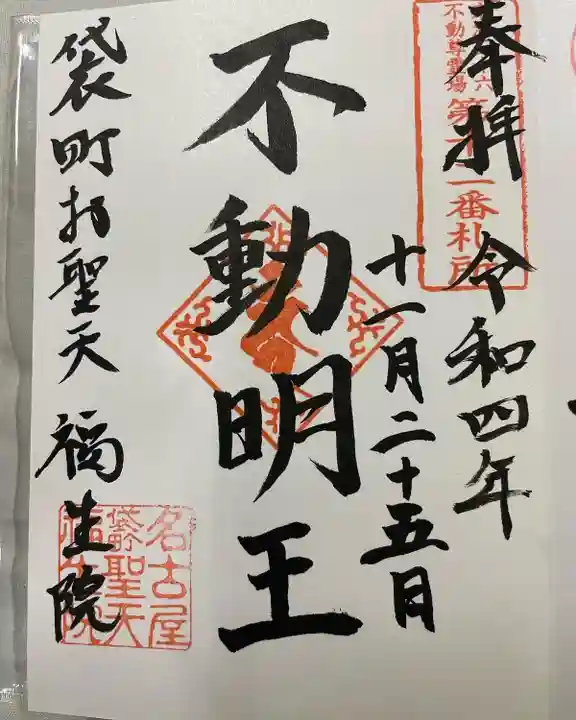 奉拝 令和四年
十一月二十五日
不動明王
袋町お聖天 福生院
不動尊霊場
第十一番札所
名古屋
袋町聖天
福生院